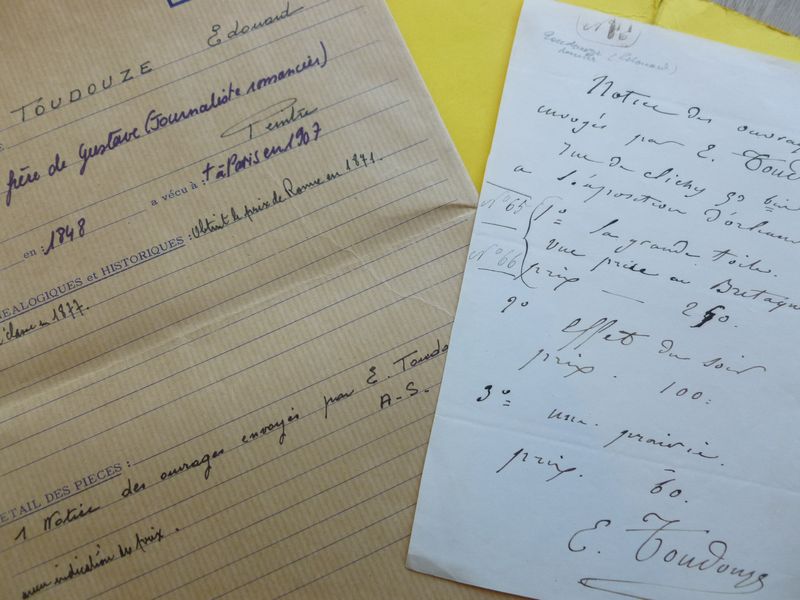 Edouard
TOUDOUZE
Peintre
frère de Gustave (Journaliste romancier)
en : 1848 a vécu à : † à Paris en 1907
NEALOGIQUES et HISTORIQUES : Obtint le prix de Rome en 1871.
en 1877.
DETAIL DES PIECES :
1 Notice des ouvrages envoyés par E. Toudo
A-S.
avec indication des prix.
Toudouze (Edouard)
Notice des ouvrag
envoyés par E. Toud
rue de clichy 39 bis
a l'exposition d'orleans
N° 65
1° la grande toile.
vue prise en Bretagne
N° 66
prix — 250.
2° effet du soir
prix. 100.
3° une prairie.
prix. 60.
E. Toudouze